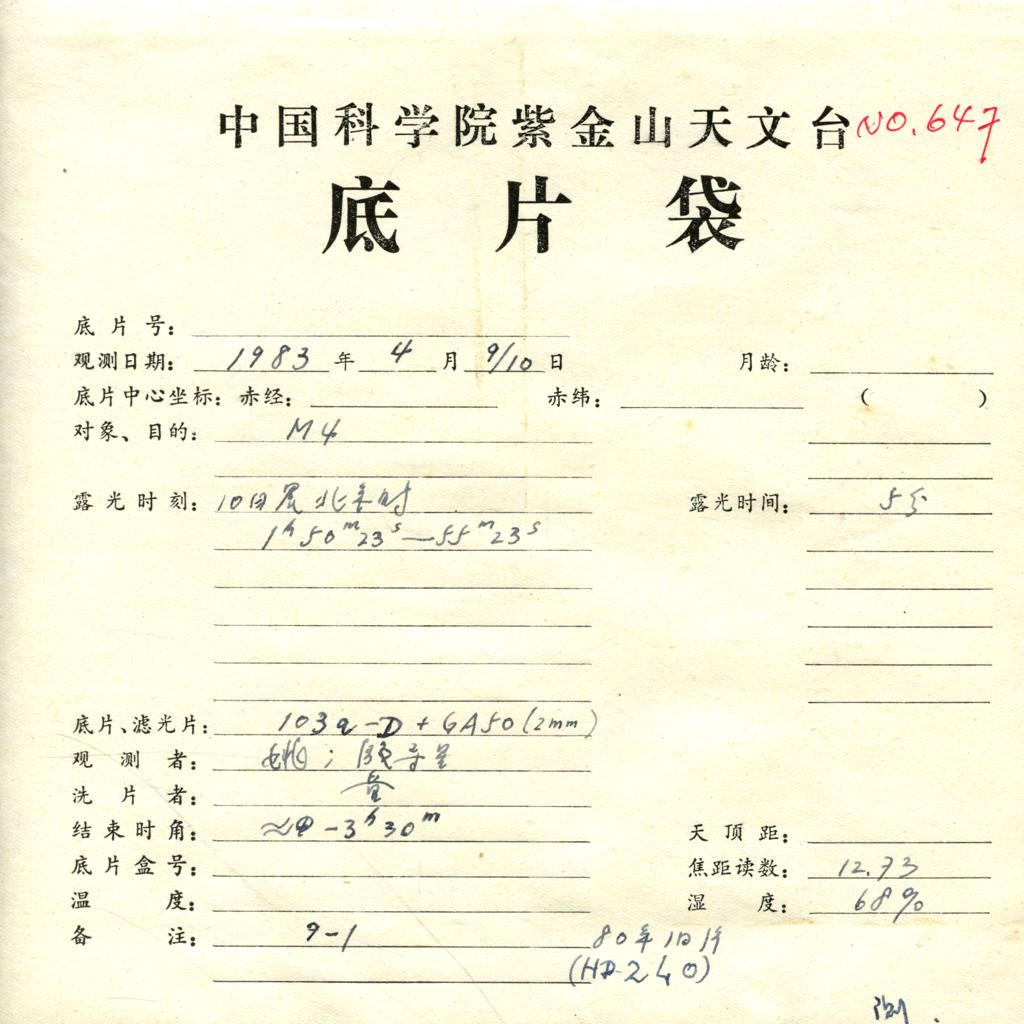 中国科学院紫金山天文台 NO.647
底片袋
底片号：
观测日期： 1983 年 4 月 9/10 日 月龄：
底片中心坐标：赤经： 赤纬： （ ）
对象、目的： M4
露光时刻： 10日晨北京时 露光时间： 5分
1h50m23s—55m23s
底片、滤光片： 103a-D + GA50 (2mm)
观测者：
洗片者：
结束时角： -3h30m 天顶距：
底片盒号： 焦距读数： 12.73
温度： 湿度： 68%
备注： 9-1 80年旧片
(HD-240)
测.